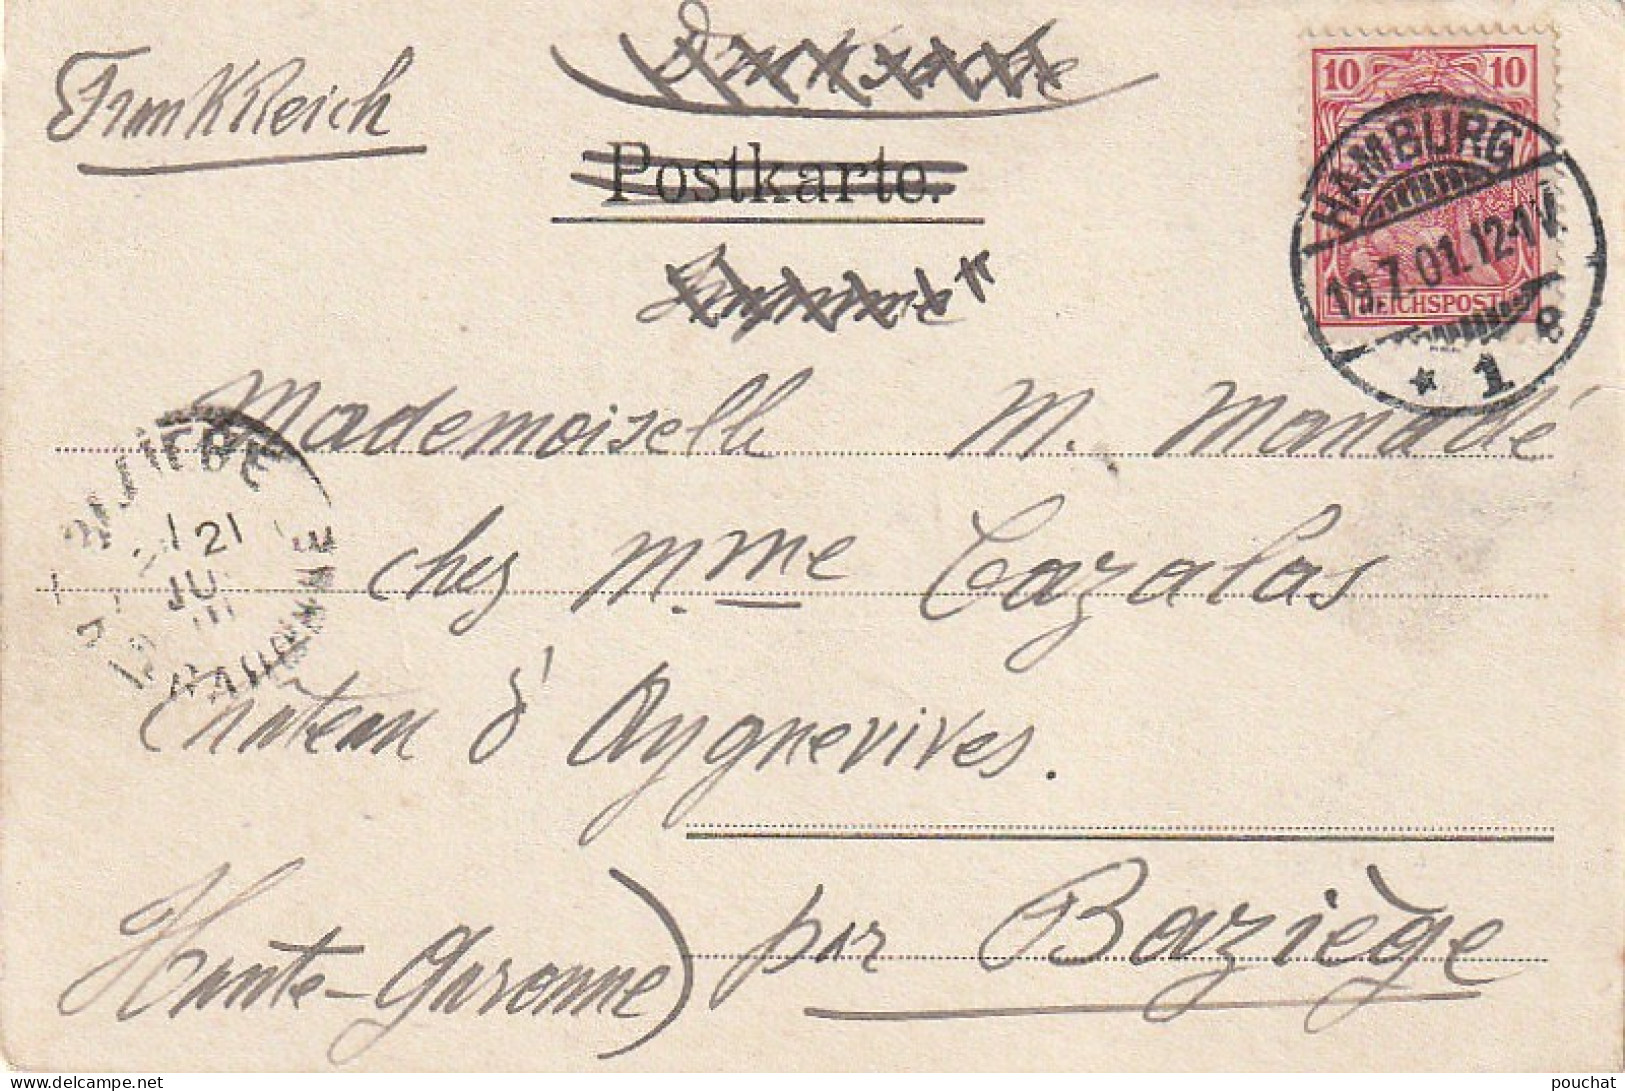 FrankReich
Drucksache
Postkarte.
10 10
REICHSPOST
HAMBURG
19.7.01.12-1V.
* 1 e
Mademoiselle M. Manadé
chez Mme Cazalas
Château d'Aygnesvives.
(Haute-Garonne) par Baziège
21
JUIL
GARONNE
delcampe.net
pouchat